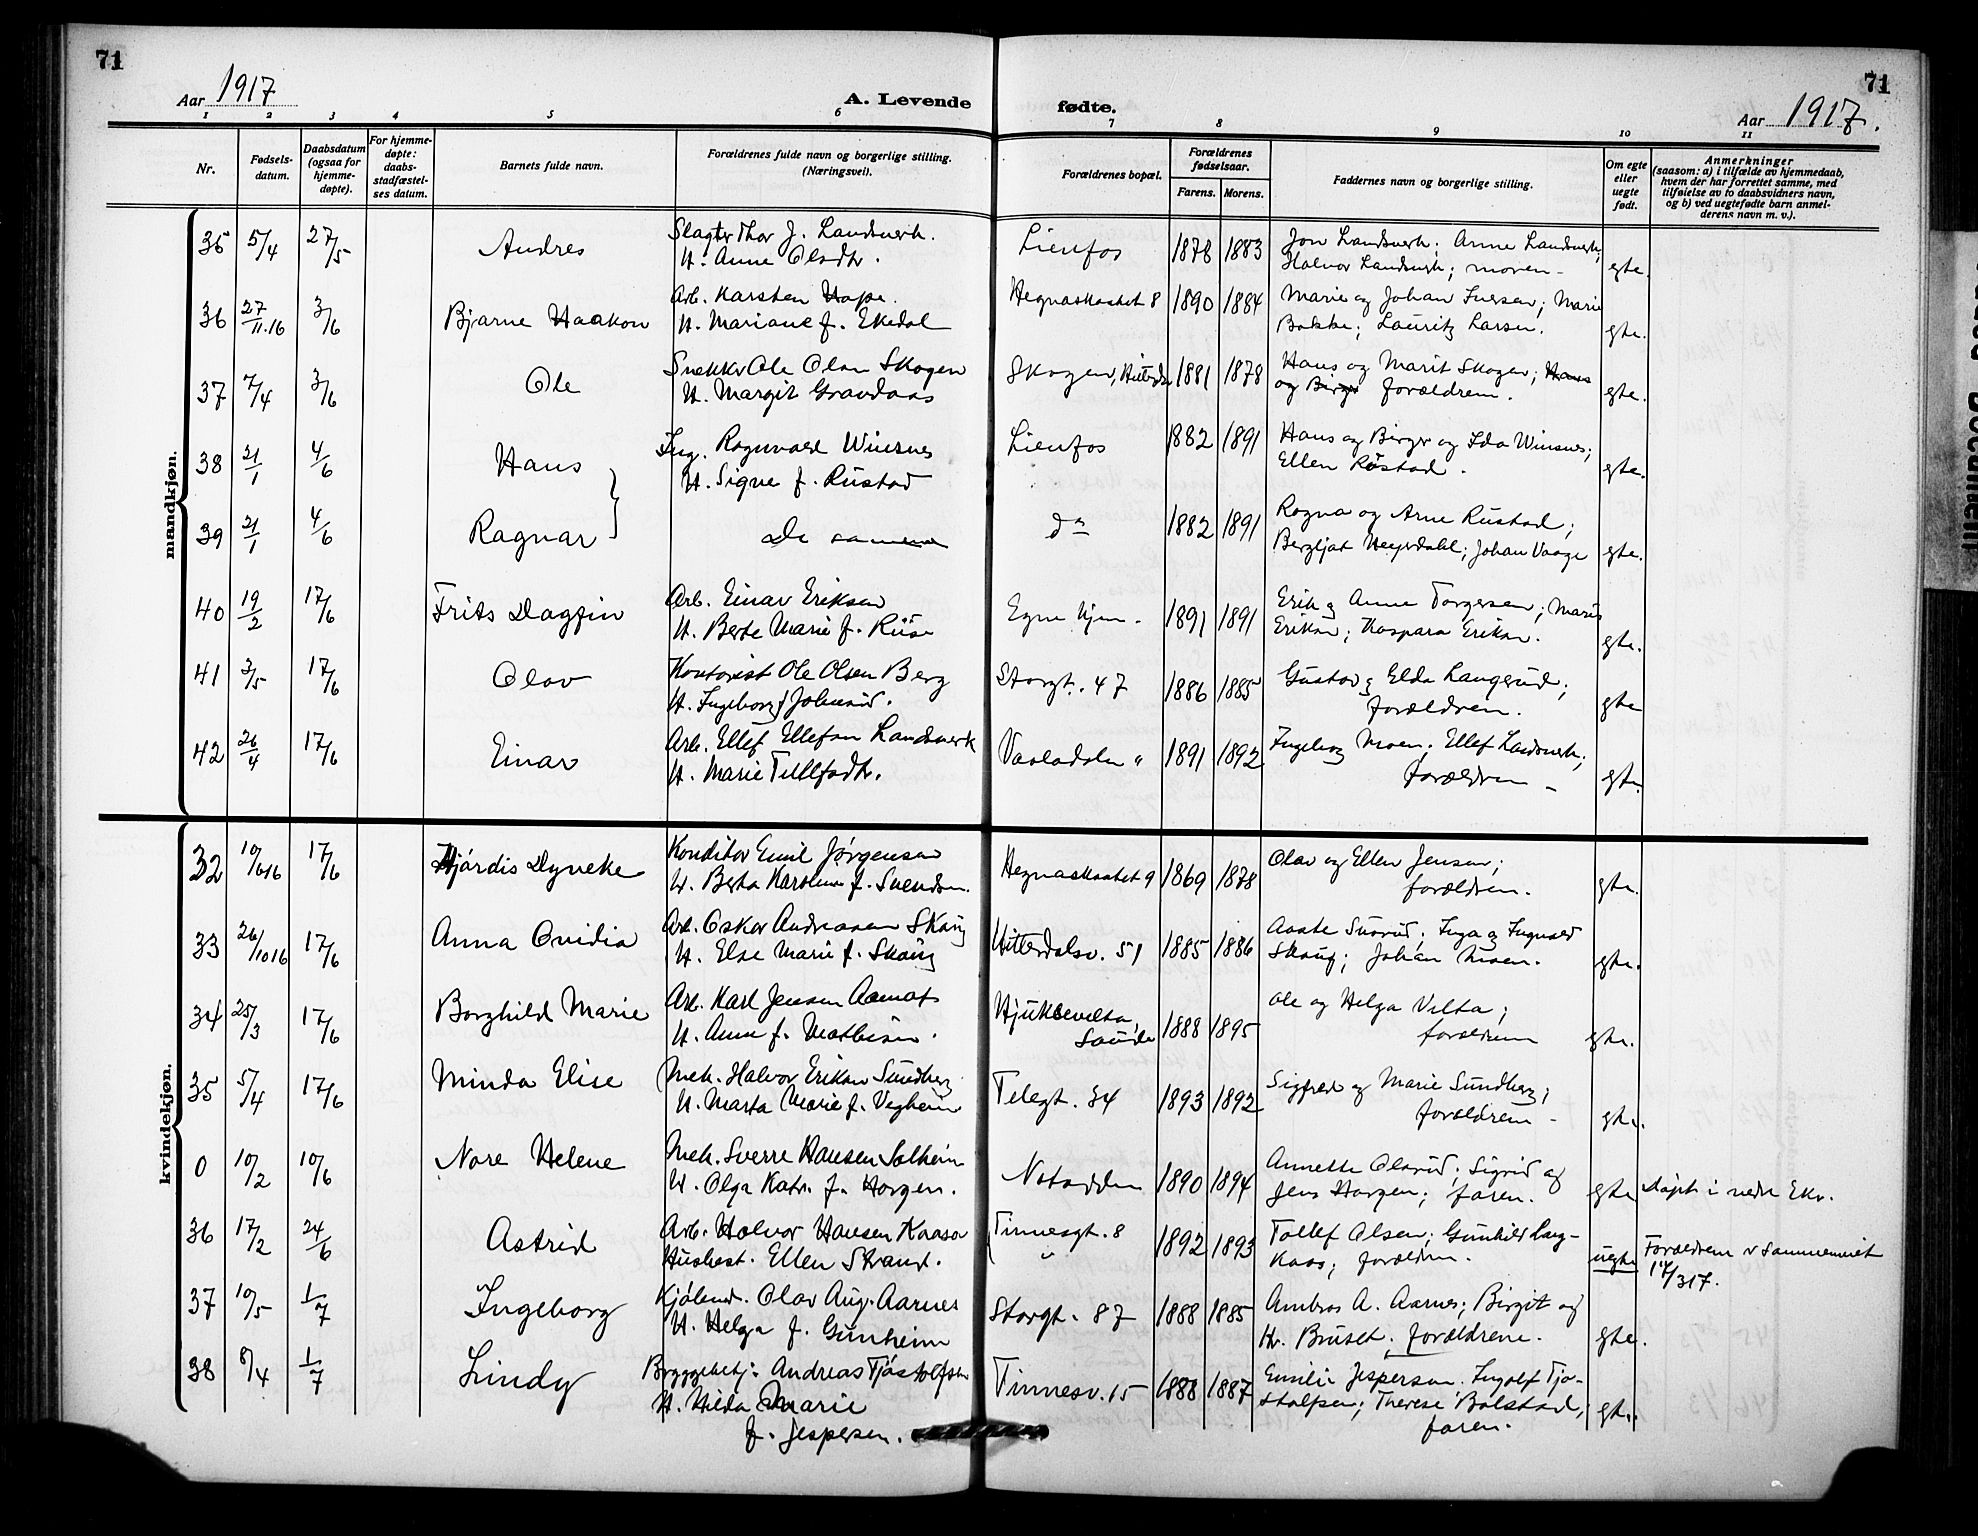 71
71
Aar 1917
A. Levende fødte.
Aar 1917.
1 2 3 4 5 6 7 8 9 10 11
Nr.
Fødsels-
datum.
Daabsdatum
(ogsaa for
hjemme-
døpte).
For hjemme-
døpte:
daabs-
stadfæstel-
ses datum.
Barnets fulde navn.
Forældrenes fulde navn og borgerlige stilling.
(Næringsvei).
Forældrenes bopæl.
Forældrenes
fødselsaar.
Farens. Morens.
Faddernes navn og borgerlige stilling.
Om egte
eller
uegte
født.
Anmerkninger
(saasom: a) i tilfælde av hjemmedaab,
hvem der har forrettet samme, med
tilføielse av to daabsvidners navn,
og b) ved uegtefødte barn anmel-
derens navn m. v.).
mandkjøn.
35 5/4 27/5 Andres Slagter Thor J. Landsverk. Lienfos 1878 1883 Jon Landsverk; Anne Landsverk;
H. Anne Olsdtr. Halvor Landsverk; moren - egte.
36 27/11.16 3/6 Bjarne Haakon Arb. Karsten Hope. Hegnaskaatet 8 1890 1884 Marie og Johan Iversen; Marie
H. Mariane f. Ekedal Bakke; Lauritz Larsen. gte.
37 7/4 3/6 Ole Snekker Ole Olsen Skogen Skogen, Hitterdal 1881 1878 Hans og Marit Skogen; Hans
H. Margit Gravdaas og Birger forældrene. gte.
38 21/1 4/6 Hans Ing. Ragnvald Winsnes Lienfos 1882 1891 Hans og Birger og Ida Winsnes;
H. Signe f. Rustad Ellen Rustad. gte.
39 21/1 4/6 Ragnar de samme do 1882 1891 Ragna og Arne Rustad;
Bergljot Heyerdahl; Johan Vaage gte.
40 19/2 17/6 Frits Dagfin Arb. Einar Eriksen Egne hjem. 1891 1891 Erik og Anne Torgersen; Marie
H. Berte Marie f. Riise Eriksen; Kaspara Eriksen. gte.
41 3/5 17/6 Olav Kontorist Ole Olsen Berg Storgt. 47 1886 1885 Gustav og Elda Langerud;
H. Ingeborg f Johnsrud. forældren. gte
42 26/4 17/6 Einar Arb. Ellef Ellefsen Landsverk Vaaladalen 1891 1892 Ingeborg Moen; Ellef Landsverk;
H. Marie Tellefsdtr. forældren - gte.
kvindekjøn.
32 10/616 17/6 Hjørdis Dyveke Konditor Emil Jørgensen Hegnaskaatet 9 1869 1878 Olav og Ellen Jensen;
H. Berta Karoline f. Svendsen. forældren. gte.
33 26/1016 17/6 Anna Ovidia Arb. Oskar Andreasen Skaug Hitterdalsv. 51 1885 1886 Aaste Snorud; Inga og Ingvald
H. Else Marie f. Skaug Skaug; Johan Moen. gte.
34 25/3 17/6 Borghild Marie Arb. Karl Jensen Aamot Hjuksevelta, 1888 1895 Ole og Helga Velta;
H. Anna f. Mathisen. Saude forældrene gte.
35 5/4 17/6 Minda Elise Mek. Halvor Eriksen Sundberg Telegt. 34 1893 1892 Sigfred og Marie Sundberg;
H. Marta Marie f. Vegheim forældrene - gte.
0 10/2 10/6 Nare Helene Mek. Sverre Hansen Solheim Notodden 1890 1894 Annette Olsrud; Sigrid og
H. Olga Katr. f. Horgen. Jens Horgen; faren. gte Døpt i nedre Ekr.
36 17/2 24/6 Astrid Arb. Halvor Hansen Kaasa Tinnesgt. 8 1892 1893 Tollef Olsen; Gunhild Lang-
Husbest. Ellen Strand. " Kaas; forældren. uegte Forældrene v sammenviet
14/317.
37 10/5 1/7 Ingeborg Kjøbmd. Olav Aug. Aarnes Storgt. 87 1888 1885 Ambros A. Aarnes; Birgit og
H. Helga f. Gunheim H. Bruset; forældrene. gte.
38 8/4 1/7 Lindy Bryggebetj: Andreas Tjøstolfsen Tinnesv. 15 1888 1887 Emilie Jespersen. Ingolf Tjø-
H. Hilda Marie stolfsen; Therese Bolstad;
f. Jespersen. faren. gt.